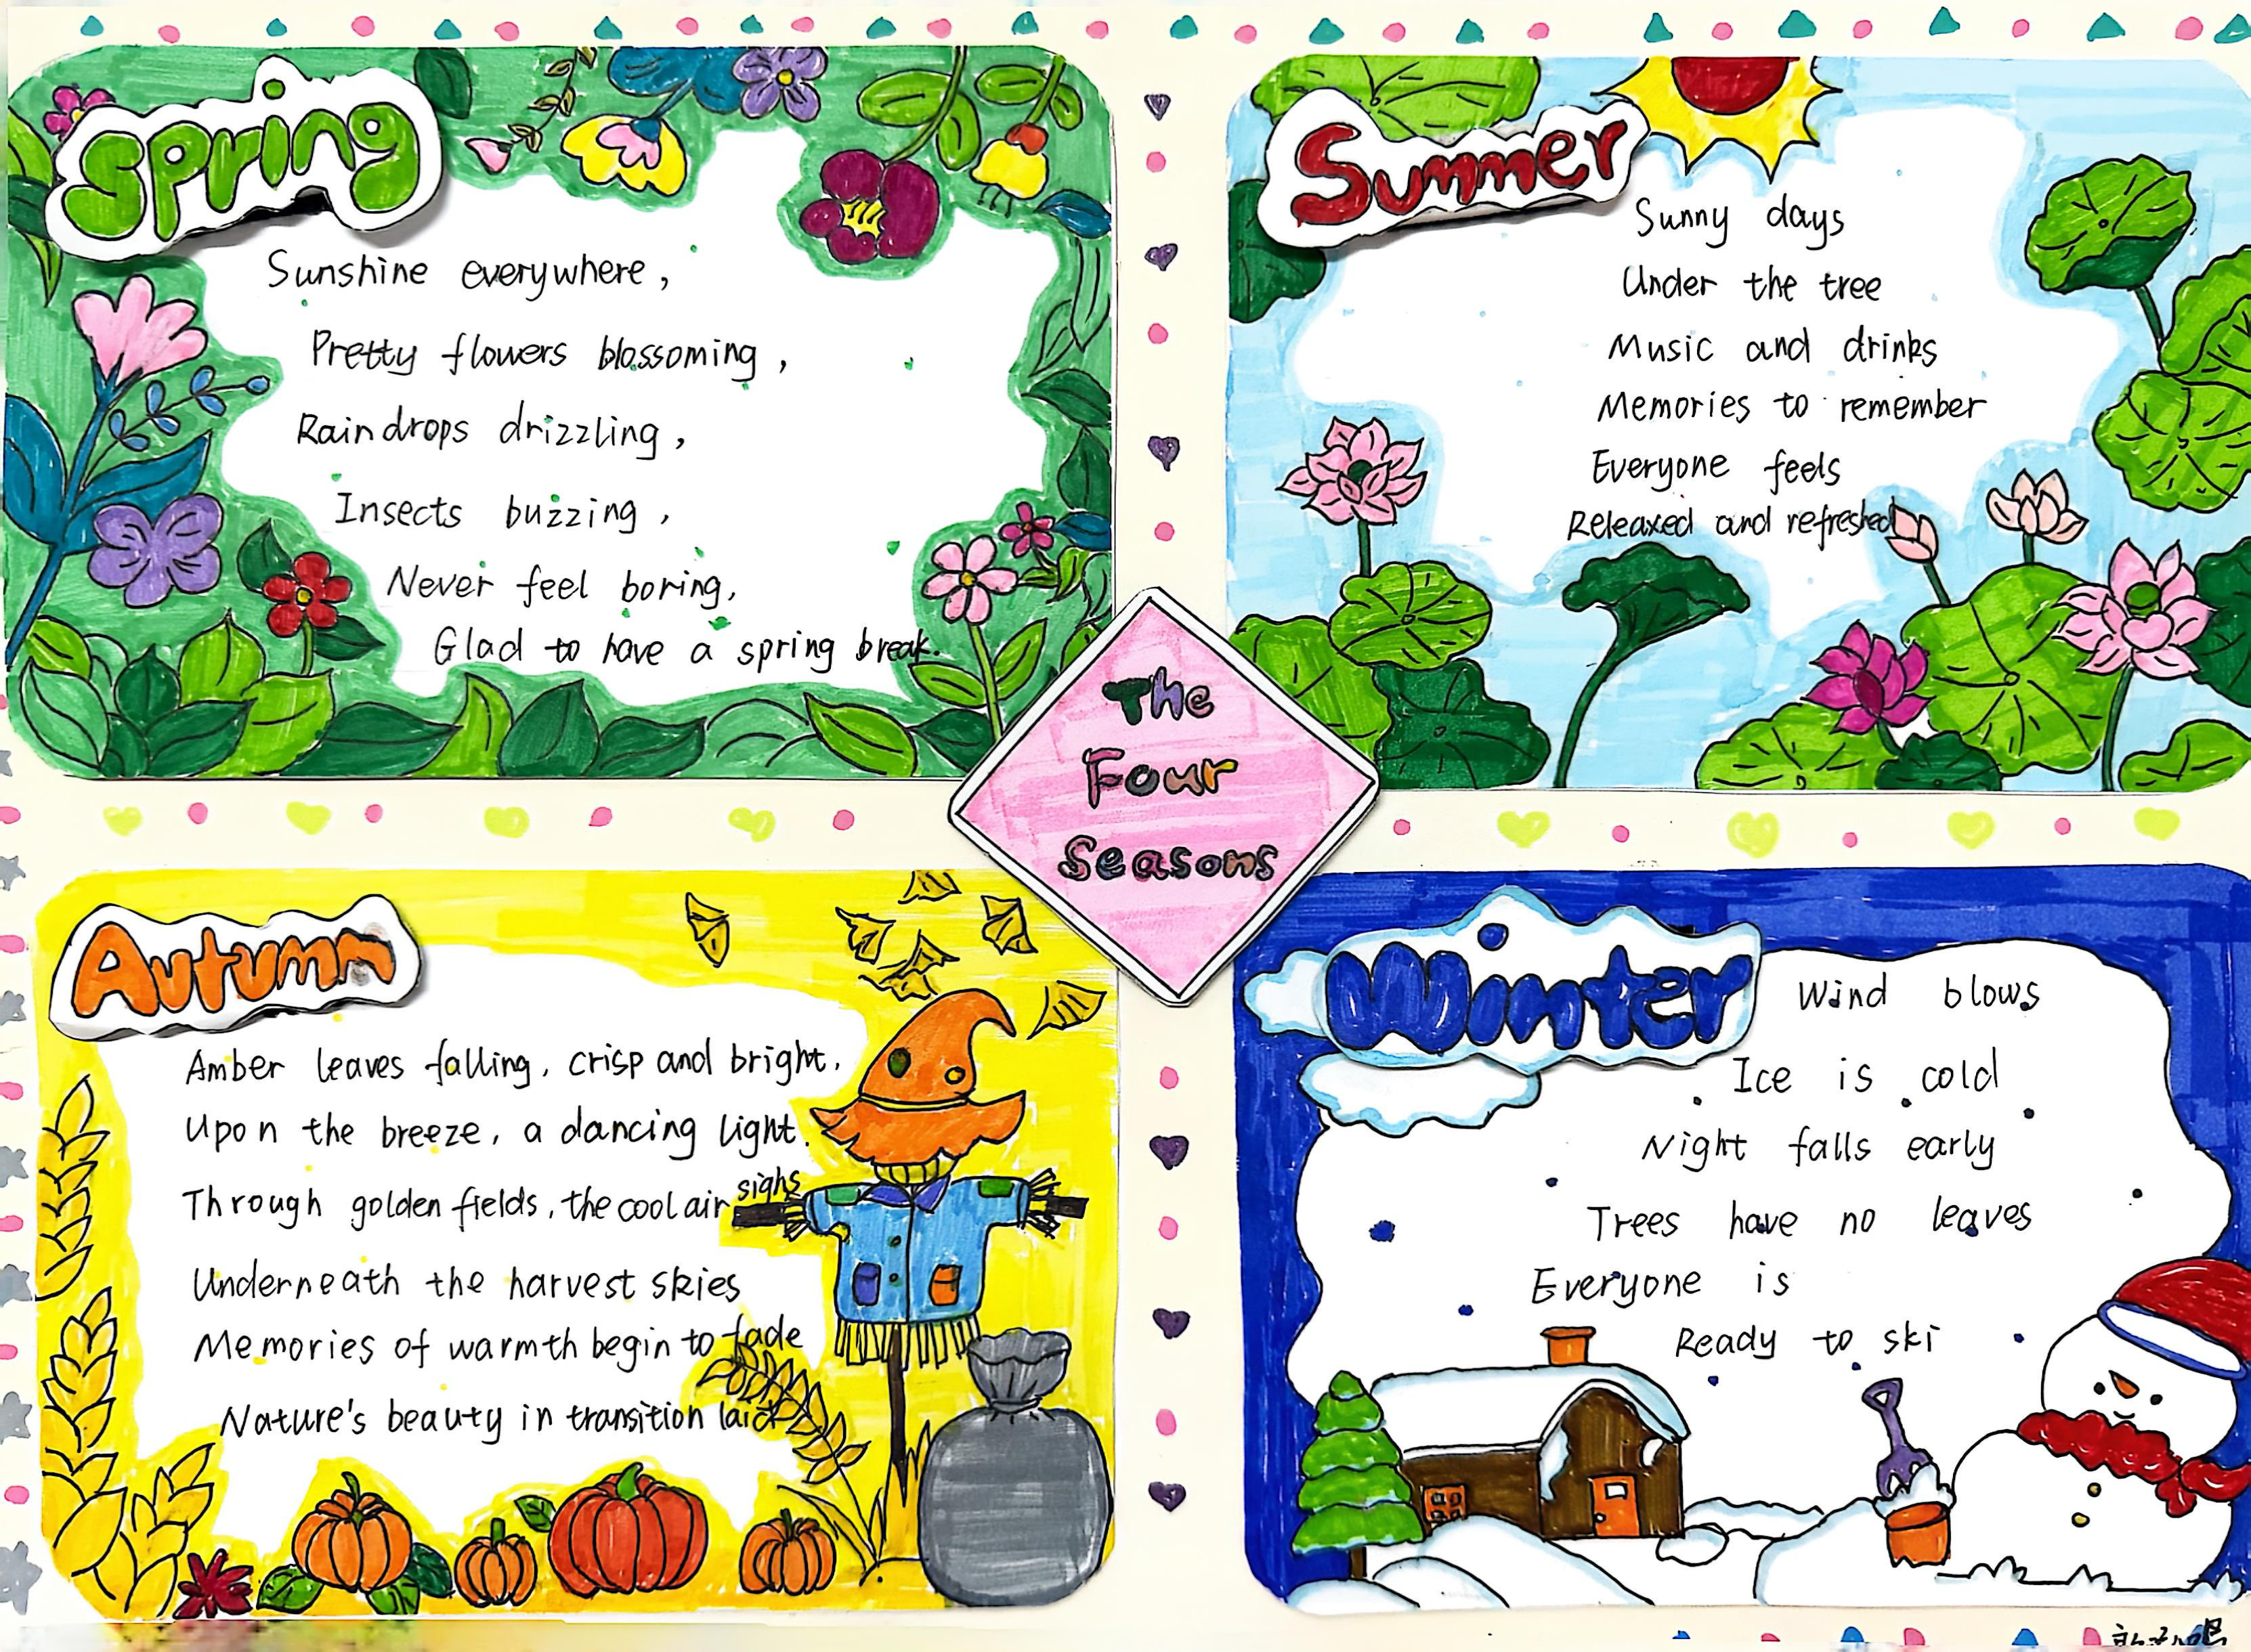 Spring
Sunshine everywhere,
Pretty flowers blossoming,
Raindrops drizzling,
Insects buzzing,
Never feel boring,
Glad to have a spring break.
Summer
Sunny days
Under the tree
Music and drinks
Memories to remember
Everyone feels
Relaxed and refreshed
The
Four
Seasons
Autumn
Amber leaves falling, crisp and bright,
Upon the breeze, a dancing light.
Through golden fields, the cool air sighs
Underneath the harvest skies
Memories of warmth begin to fade
Nature's beauty in transition laid
Winter
Wind blows
Ice is cold
Night falls early
Trees have no leaves
Everyone is
Ready to ski